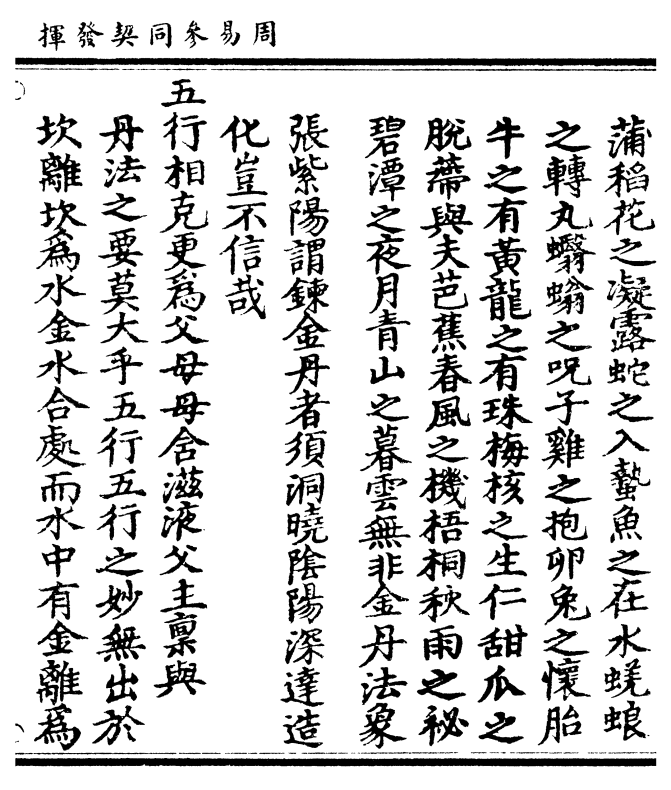 周易參同契發揮
蒲稻花之凝露蛇之入蟄魚之在水蜣蜋
之轉丸蠮螉之呪子雞之抱卵兔之懷胎
牛之有黃龍之有珠梅核之生仁甜瓜之
脫蔕與夫芭蕉春風之機梧桐秋雨之祕
碧潭之夜月青山之暮雲無非金丹法象
張紫陽謂鍊金丹者須洞曉陰陽深達造
化豈不信哉
五行相克更為父母母含滋液父主稟與
丹法之要莫大乎五行五行之妙無出於
坎離坎為水金水合處而水中有金離為